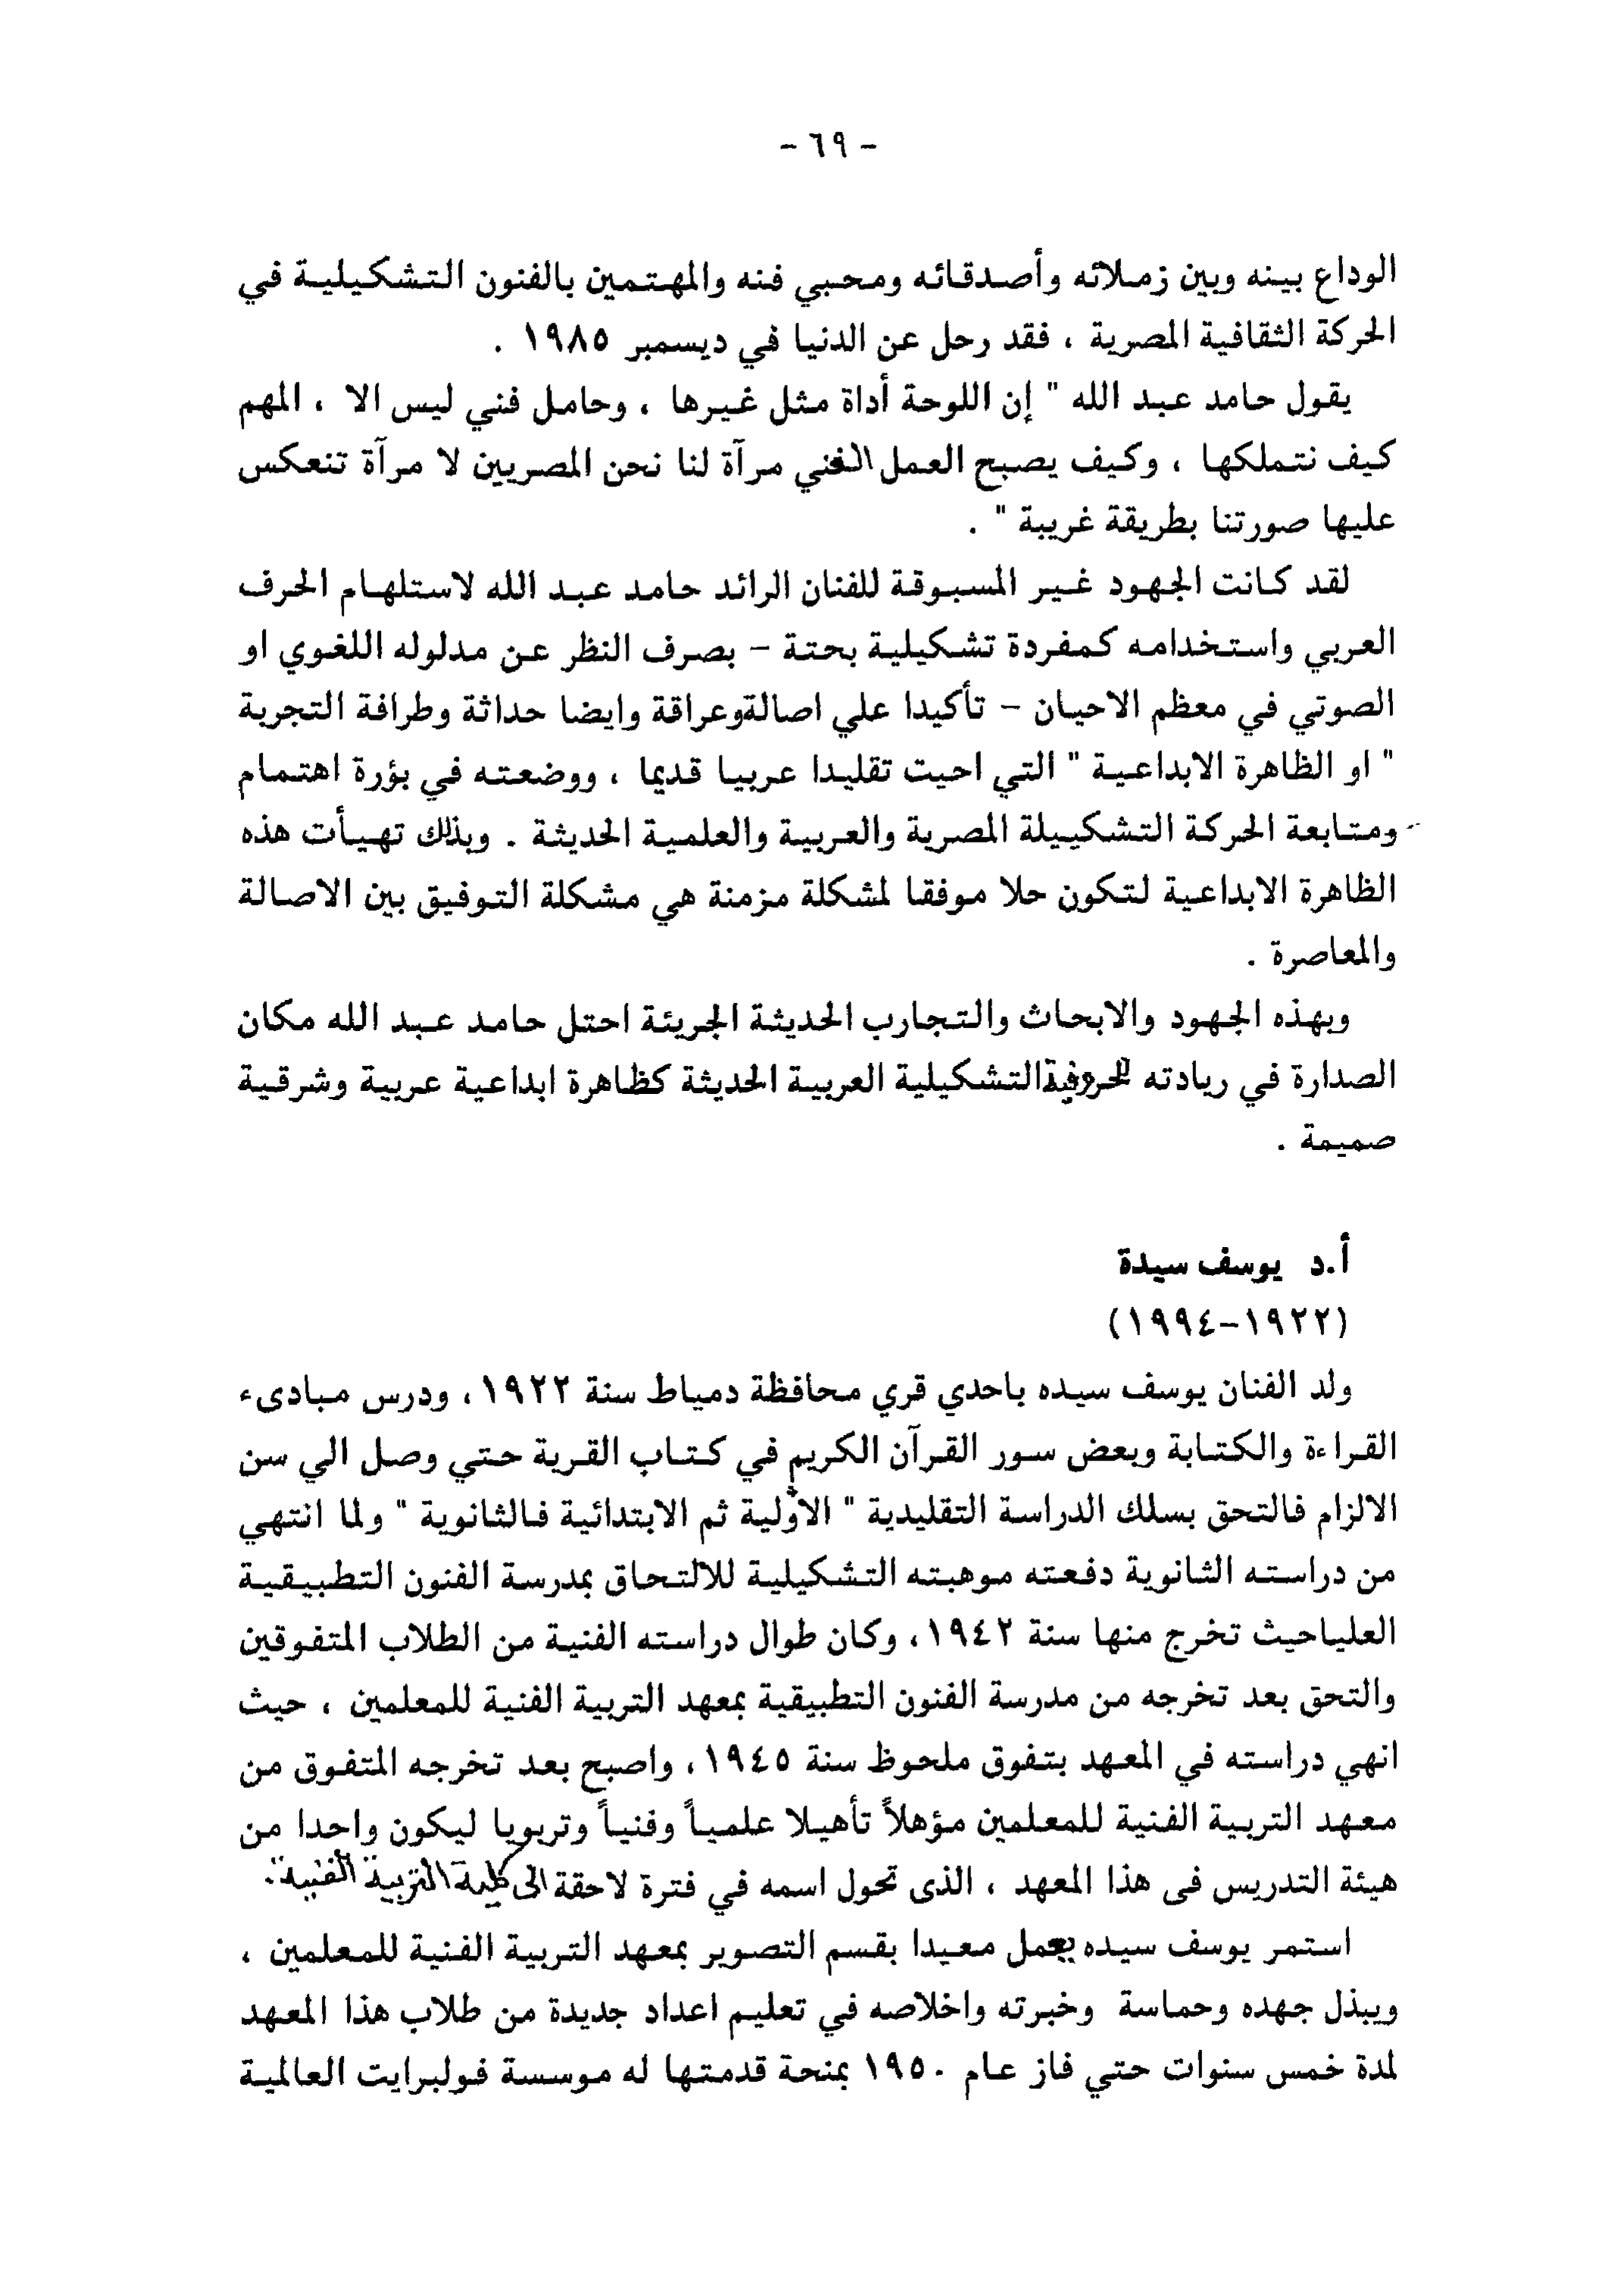 - ٦٩ -
الوداع بينه وبين زملائه وأصدقائه ومحبي فنه والمهتمين بالفنون التشكيلية في
الحركة الثقافية المصرية ، فقد رحل عن الدنيا في ديسمبر ١٩٨٥ .
يقول حامد عبد الله " إن اللوحة أداة مثل غيرها ، وحامل فني ليس الا ، المهم
كيف نتملكها ، وكيف يصبح العمل الفني مرآة لنا نحن المصريين لا مرآة تنعكس
عليها صورتنا بطريقة غريبة " .
لقد كانت الجهود غير المسبوقة للفنان الرائد حامد عبد الله لاستلهام الحرف
العربي واستخدامه كمفردة تشكيلية بحتة - بصرف النظر عن مدلوله اللغوي او
الصوتي في معظم الاحيان - تأكيدا علي اصالةوعراقة وايضا حداثة وطرافة التجربة
" او الظاهرة الابداعية " التي احيت تقليدا عربيا قديما ، ووضعته في بؤرة اهتمام
ومتابعة الحركة التشكييلة المصرية والعربية والعلمية الحديثة . وبذلك تهيأت هذه
الظاهرة الابداعية لتكون حلا موفقا لمشكلة مزمنة هي مشكلة التوفيق بين الاصالة
والمعاصرة .
وبهذه الجهود والابحاث والتجارب الحديثة الجريئة احتل حامد عبد الله مكان
الصدارة في ريادته للحروفيةالتشكيلية العربية الحديثة كظاهرة ابداعية عربية وشرقية
صميمة .
أ.د يوسف سيدة
(١٩٢٢-١٩٩٤)
ولد الفنان يوسف سيده باحدي قري محافظة دمياط سنة ١٩٢٢، ودرس مبادىء
القراءة والكتابة وبعض سور القرآن الكريم في كتاب القرية حتي وصل الي سن
الالزام فالتحق بسلك الدراسة التقليدية " الأولية ثم الابتدائية فالثانوية " ولما انتهي
من دراسته الثانوية دفعته موهبته التشكيلية للالتحاق بمدرسة الفنون التطبيقية
العلياحيث تخرج منها سنة ١٩٤٢، وكان طوال دراسته الفنية من الطلاب المتفوقين
والتحق بعد تخرجه من مدرسة الفنون التطبيقية بمعهد التربية الفنية للمعلمين ، حيث
انهي دراسته في المعهد بتفوق ملحوظ سنة ١٩٤٥، واصبح بعد تخرجه المتفوق من
معهد التربية الفنية للمعلمين مؤهلاً تأهيلا علمياً وفنياً وتربويا ليكون واحدا من
هيئة التدريس فى هذا المعهد ، الذى تحول اسمه في فترة لاحقة الى كلية "التربية الفنية".
استمر يوسف سيده يعمل معيدا بقسم التصوير بمعهد التربية الفنية للمعلمين ،
ويبذل جهده وحماسة وخبرته واخلاصه في تعليم اعداد جديدة من طلاب هذا المعهد
لمدة خمس سنوات حتي فاز عام ١٩٥٠ بمنحة قدمتها له موسسة فولبرايت العالمية